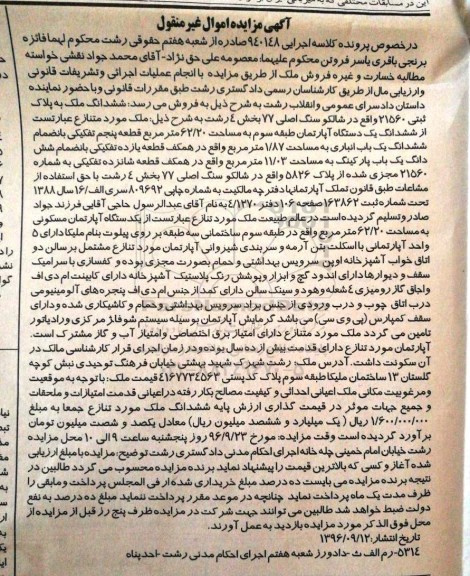 آگهی مزایده اموال غیر منقول
درخصوص پرونده کلاسه اجرایی ۹۴۰۱۴۸ صادره از شعبه هفتم حقوقی رشت محکوم لهما فائزه
برنجی باقری یاسر فروتن محکوم علیهما: معصومه علی حق نژاد- آقای محمد جواد نقشی خواسته
مطالبه خسارت و غیره فروش ملک از طریق مزایده با انجام عملیات اجرائی و تشریفات قانونی
و ارزیابی مال از طریق کارشناسان رسمی دادگستری رشت طبق مقررات قانونی و با حضور نماینده
دادستان دادسرای عمومی و انقلاب رشت به شرح ذیل به فروش می رسد: ششدانگ ملک به پلاک
ثبتی ۲۱۵۶۰ واقع در شالکو سنگ اصلی ۷۷ بخش ۴ رشت به شرح ذیل: ملک مورد تنازع عبارتست
از ششدانگ یک دستگاه آپارتمان طبقه سوم به مساحت ۶۲/۲۰ مترمربع قطعه پنجم تفکیکی بانضمام
ششدانگ یک باب انباری به مساحت ۱/۸۷ مترمربع واقع در همکف قطعه یازده تفکیکی بانضمام شش
دانگ یک باب پارکینگ به مساحت ۱۱/۰۳ مترمربع واقع در همکف قطعه شانزده تفکیکی به شماره
۲۱۵۶۰ مجزی شده از پلاک ۵۸۲۶ واقع در شالکو سنگ اصلی ۷۷ بخش ۴ رشت با حق استفاده از
مشاعات طبق قانون تملک آپارتمانها دفترچه مالکیت به شماره چاپی ۸۰۹۶۹۲ سری الف/۱۶ سال ۱۳۸۸
تحت شماره ثبت ۱۶۳۸۶۲ صفحه ۱۰۶ دفتر ۴/۱۲۷۰ به نام آقای عبدالرسول حاجی آقایی فرزند جواد
صادر و تسلیم گردیده است در عالم طبیعت ملک مورد تنازع عبارتست از یکدستگاه آپارتمان مسکونی
به مساحت ۶۲/۲۰ مترمربع واقع در طبقه سوم ساختمانی سه طبقه بر روی پیلوت بنام ملیکا دارای ۵
واحد آپارتمانی با اسکلت بتن آرمه و سربندی شیروانی آپارتمان مورد تنازع مشتمل بر سالن دو
اتاق خواب آشپزخانه اوپن سرویس بهداشتی و حمام بصورت مجزی بوده و کفسازی با سرامیک
سقف و دیوارها دارای اندود گچ و ابزار و پوشش رنگ پلاستیک آشپزخانه دارای کابینت ام دی اف
و اجاق گاز رومیزی ۴ شعله و هود و سینک سالن دارای کمد از جنس ام دی اف پنجره های آلومینیومی
درب اتاق چوب و درب ورودی از جنس براد سرویس بهداشتی و حمام و کاشیکاری شده و دارای
سقف کمپارس (پی وی سی) می باشد گرمایش آپارتمان بوسیله سیستم شوفاژ مرکزی و رادیاتور
تامین می گردد ملک مورد متنازع دارای امتیاز برق اختصاصی و امتیاز آب و گاز مشترک است.
آپارتمان مورد تنازع دارای قدمت بیش از ده سال بوده و در زمان اجرای قرار کارشناسی مالک در
آن سکونت داشت. آدرس ملک: رشت شهرک شهید بهشتی خیابان فرهنگ توحیدی نبش کوچه
گلستان ۱۳ ساختمان ملیکا طبقه سوم پلاک کدپستی ۴۱۶۷۷۳۴۵۶۳ قیمت ملک: با توجه به موقعیت
و مرغوبیت مکانی ملک اعیانی احداثی و کیفیت مصالح بکار رفته در اعیانی قدمت امتیازات و ملحقات
و جمیع جهات موثر در قیمت گذاری ارزش پایه ششدانگ ملک مورد تنازع جمعا به مبلغ
۱/۶۰۰/۰۰۰/۰۰۰ ریال (یک میلیارد و ششصد میلیون ریال) معادل یکصد و شصت میلیون تومان
برآورد گردیده است وقت مزایده: مورخ ۹۶/۹/۲۳ روز پنجشنبه ساعت ۹ الی ۱۰ محل مزایده
رشت خیابان امام خمینی چله خانه اجرای احکام مدنی دادگستری رشت توضیح: مزایده با مبلغ ارزیابی
شده آغاز و کسی که بالاترین قیمت را پیشنهاد نماید برنده مزایده محسوب می گردد طالبین در
نتیجه برنده مزایده می بایست ده درصد مبلغ خریداری شده را فی المجلس پرداخت و مابقی را
ظرف مدت یک ماه پرداخت نماید چنانچه در موعد مقرر پرداخت ننماید مبلغ ده درصد به نفع
دولت ضبط خواهد شد طالبین می توانند جهت شرکت در مزایده ظرف پنج روز قبل از مزایده از
محل فوق الذکر مورد مزایده بازدید به عمل آورند.
تاریخ انتشار: ۱۳۹۶/۰۹/۱۲
۵۳۱۴- رم الف ث -دادورز شعبه هفتم اجرای احکام مدنی رشت -احد پناه